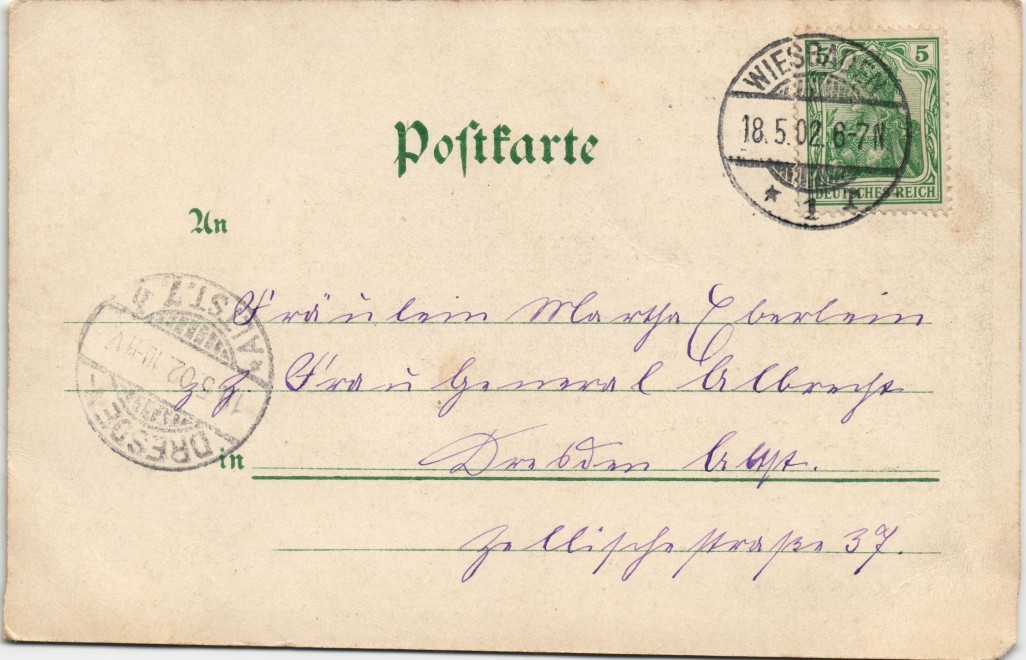 WIESBADEN
18.5.02. 6-7 N
* 1 *
5 5
DEUTSCHES REICH
Postkarte
An
Fräulein Martha Eberlein
Frau General Albrecht
in Dresden Altst.
Zellischestraße 37.
DRESDEN
5.02. 10-11 V
ALTST. 7